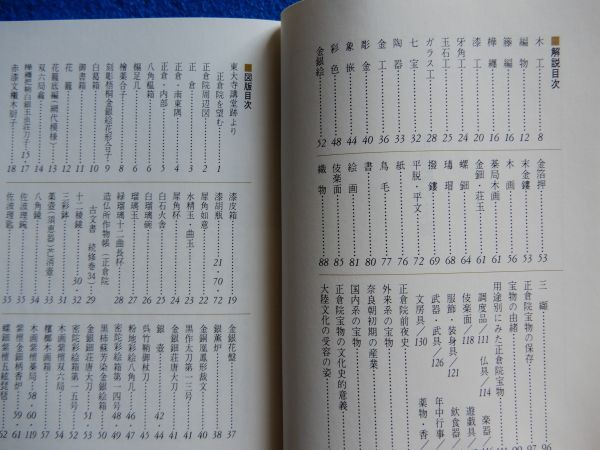 ■解説目次
木工 8
編物 12
籐編 14
樺纏 16
漆工 20
牙角工 24
玉石工 25
ガラス工 28
七宝 32
陶器 33
金工 36
彫金 40
象嵌 44
彩色 48
金銀絵 52
金箔押 53
末金鏤 53
木画 56
薬局木画 61
金鈿・荘玉 61
螺鈿 64
瑇瑁 68
撥鏤 69
平脱・平文 72
紙 76
鳥毛 77
書 80
絵画 81
伎楽面 85
織物 88
三纈 96
正倉院宝物の保存 97
宝物の由緒 99
用途別にみた正倉院宝物
調度品/111 仏具/114 楽器
伎楽面/118 遊戯具
服飾・装身具/121 飲食器
武器・武具/126 年中行事
文房具/130 薬物・香
正倉院前夜史
外来系の宝物
奈良朝初期の産業
国内系の宝物
正倉院宝物の文化史的意義
大陸文化の受容の姿
■図版目次
東大寺講堂跡より
正倉院を望む 1
正倉院周辺図 2
正倉 3
正倉・南東隅 4
正倉・内部 5
八角榲箱 6
榻足几 7
檜薬合子 8
刻彫梧桐金銀絵花形合子 9
白葛箱 10
御書箱 11
花籠 12
花籠底編(網代模様) 13
双六局龕 14
樺纏把鞘白銀玉虫荘刀子 15・17
赤漆文欟木厨子 18
漆皮箱 19
漆胡瓶 21・70・72
犀角如意 22
水精玉・曲玉 23
犀角杯 24
白石火舎 25
白瑠璃碗 26
瑠璃玉 27
緑瑠璃十二曲長杯 28
造仏所作物帳(正倉院
古文書 続修巻34) 29
十二稜鏡 30・32
三彩鉢 31
薬壺(須恵器)、𦬇消壺 33
八角鏡 34
佐波理鋺 35
佐波理匙 35
金銀花盤 37
銀薫炉 38
金銅鳳凰形裁文 40
黒作大刀第一三号 41
金銀鈿荘唐大刀 42
銀壺 42・44
呉竹鞘御杖刀 45
粉地彩絵八角几 46・47
密陀彩絵箱第一四号 48・49
黒柿蘇芳染金銀絵箱 50
金銀鈿荘唐大刀 51・53
密陀彩絵箱第一五号 52
木画紫檀双六局 54
欟榔木画箱 57
木画紫檀棊局 58・60・119
紫檀金鈿柄香炉 59・61
螺鈿紫檀五絃琵琶 62